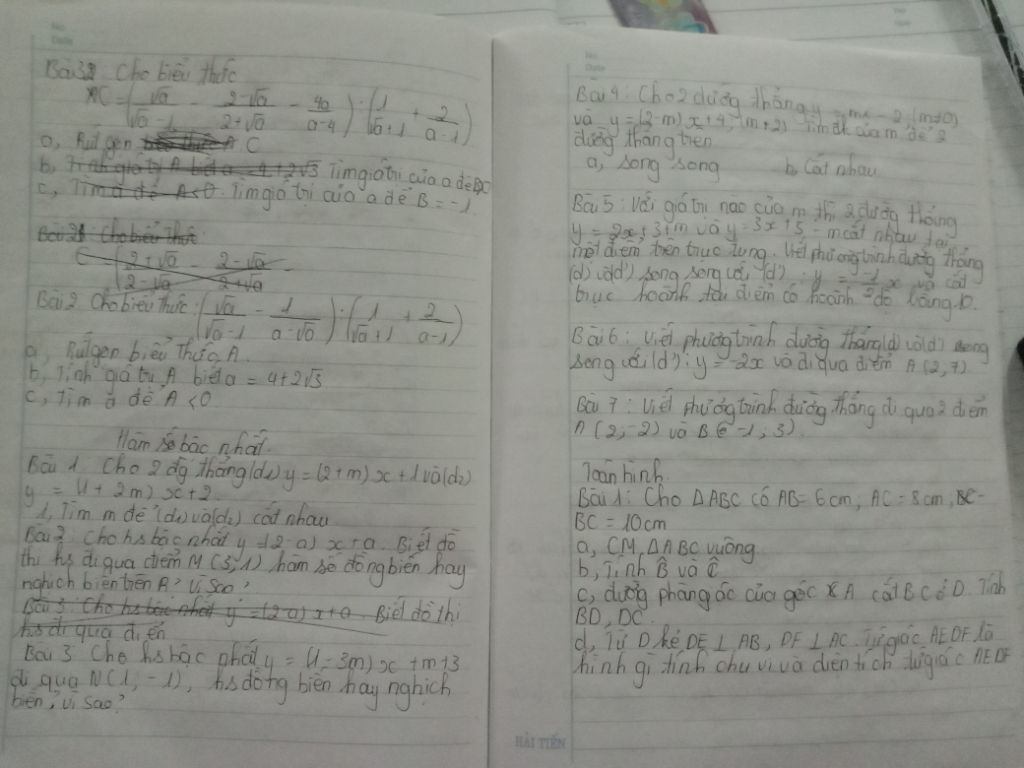 Bài 3: Cho biểu thức
C = (√a/(√a - 1) - (2-√a)/(2+√a) - 4a/(a-4)) : (1/(√a+1) + 2/(a-1))
a, Rút gọn C
b, Tìm giá trị của a để
c, Tìm giá trị của a để B = -1.
Bài 2 Cho biểu thức: (√a/(√a-1) - 1/(a-√a)) : (1/(√a+1) + 2/(a-1))
a, Rút gọn biểu thức A.
b, Tính giá trị A biết a = 4+2√3
c, Tìm a để A < 0.
Hàm số bậc nhất.
Bài 1. Cho 2 đg thẳng (d1) y = (2+m) x + 1 và (d2)
y = (1 + 2m) x + 2.
1, Tìm m để (d1) và (d2) cắt nhau
Bài 2: Cho hs bậc nhất y = (2-a) x + a. Biết đồ
thị hs đi qua điểm M (3; 1) hàm số đồng biến hay
nghịch biến trên R? Vì sao?
Bài 3: Cho hs bậc nhất y = (2-a) x + a. Biết đồ thị
hs đi qua điểm
Bài 3 Cho hs bậc nhất y = (1-3m) x + m+3
đi qua N (1, -1), hs đồng biến hay nghịch
biến, vì sao?
Bài 4: Cho 2 đường thẳng y = mx - 2 (m≠0)
và y = (2-m) x + 4, (m≠2) Tìm đk của m để 2
đường thẳng trên
a, song song b, Cắt nhau
Bài 5: Với giá trị nào của m thì 2 đường thẳng
y = 2x + 3 + m và y = 3x + 5 - m cắt nhau tại
một điểm trên trục tung. Viết phương trình đường thẳng
(d) và (d') song song với (d'): y = x và cắt
trục hoành tại điểm có hoành độ bằng 10.
Bài 6: Viết phương trình đường thẳng (d) và (d') song
song với (d'): y = -2x và đi qua điểm A (2, 7)
Bài 7: Viết phương trình đường thẳng đi qua 2 điểm
A (2; -2) và B ( -1; 3).
Toán hình
Bài 1: Cho ΔABC có AB = 6cm, AC = 8cm, BC =
BC = 10cm
a, CM, ΔABC vuông
b, Tính B̂ và Ĉ
c, đường phâng ác của góc A cắt BC ở D. Tính
BD, DC.
d, Từ D kẻ DE ⊥ AB, DF ⊥ AC. Tứ giác AEDF là
hình gì tính chu vi và diện tích tứ giác AEDF
HẢI TIẾN